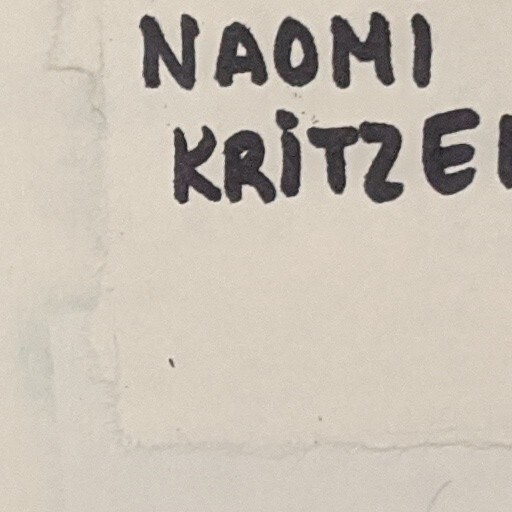 NAOMI
KRITZE